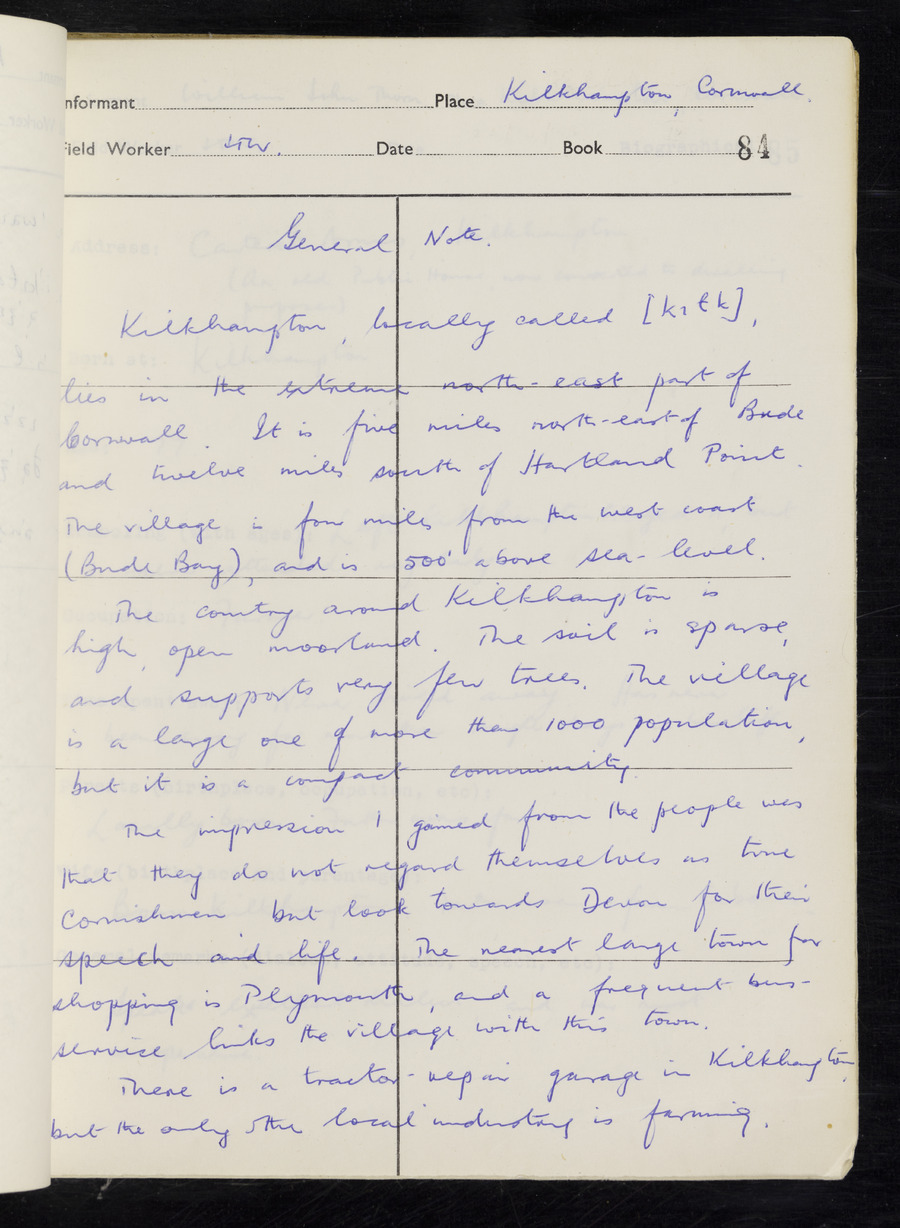 nformant Place Kilkhampton, Cornwall.
ield Worker Date Book 84
General Note.
Kilkhampton, locally called [kɪɫk],
lies in the extreme north-east part of
Cornwall. It is five miles north-east of Bude
and twelve miles south of Hartland Point.
The village is four miles from the west coast
(Bude Bay), and is 500' above sea-level.
The country around Kilkhampton is
high, open moorland. The soil is sparse,
and supports very few trees. The village
is a large one of more than 1000 population,
but it is a compact community.
The impression I gained from the people was
that they do not regard themselves as true
Cornishmen but look towards Devon for their
speech and life. The nearest large town for
shopping is Plymouth, and a frequent bus-
servise links the village with this town.
There is a tractor-repair garage in Kilkhampton,
but the only other local industry is farming.